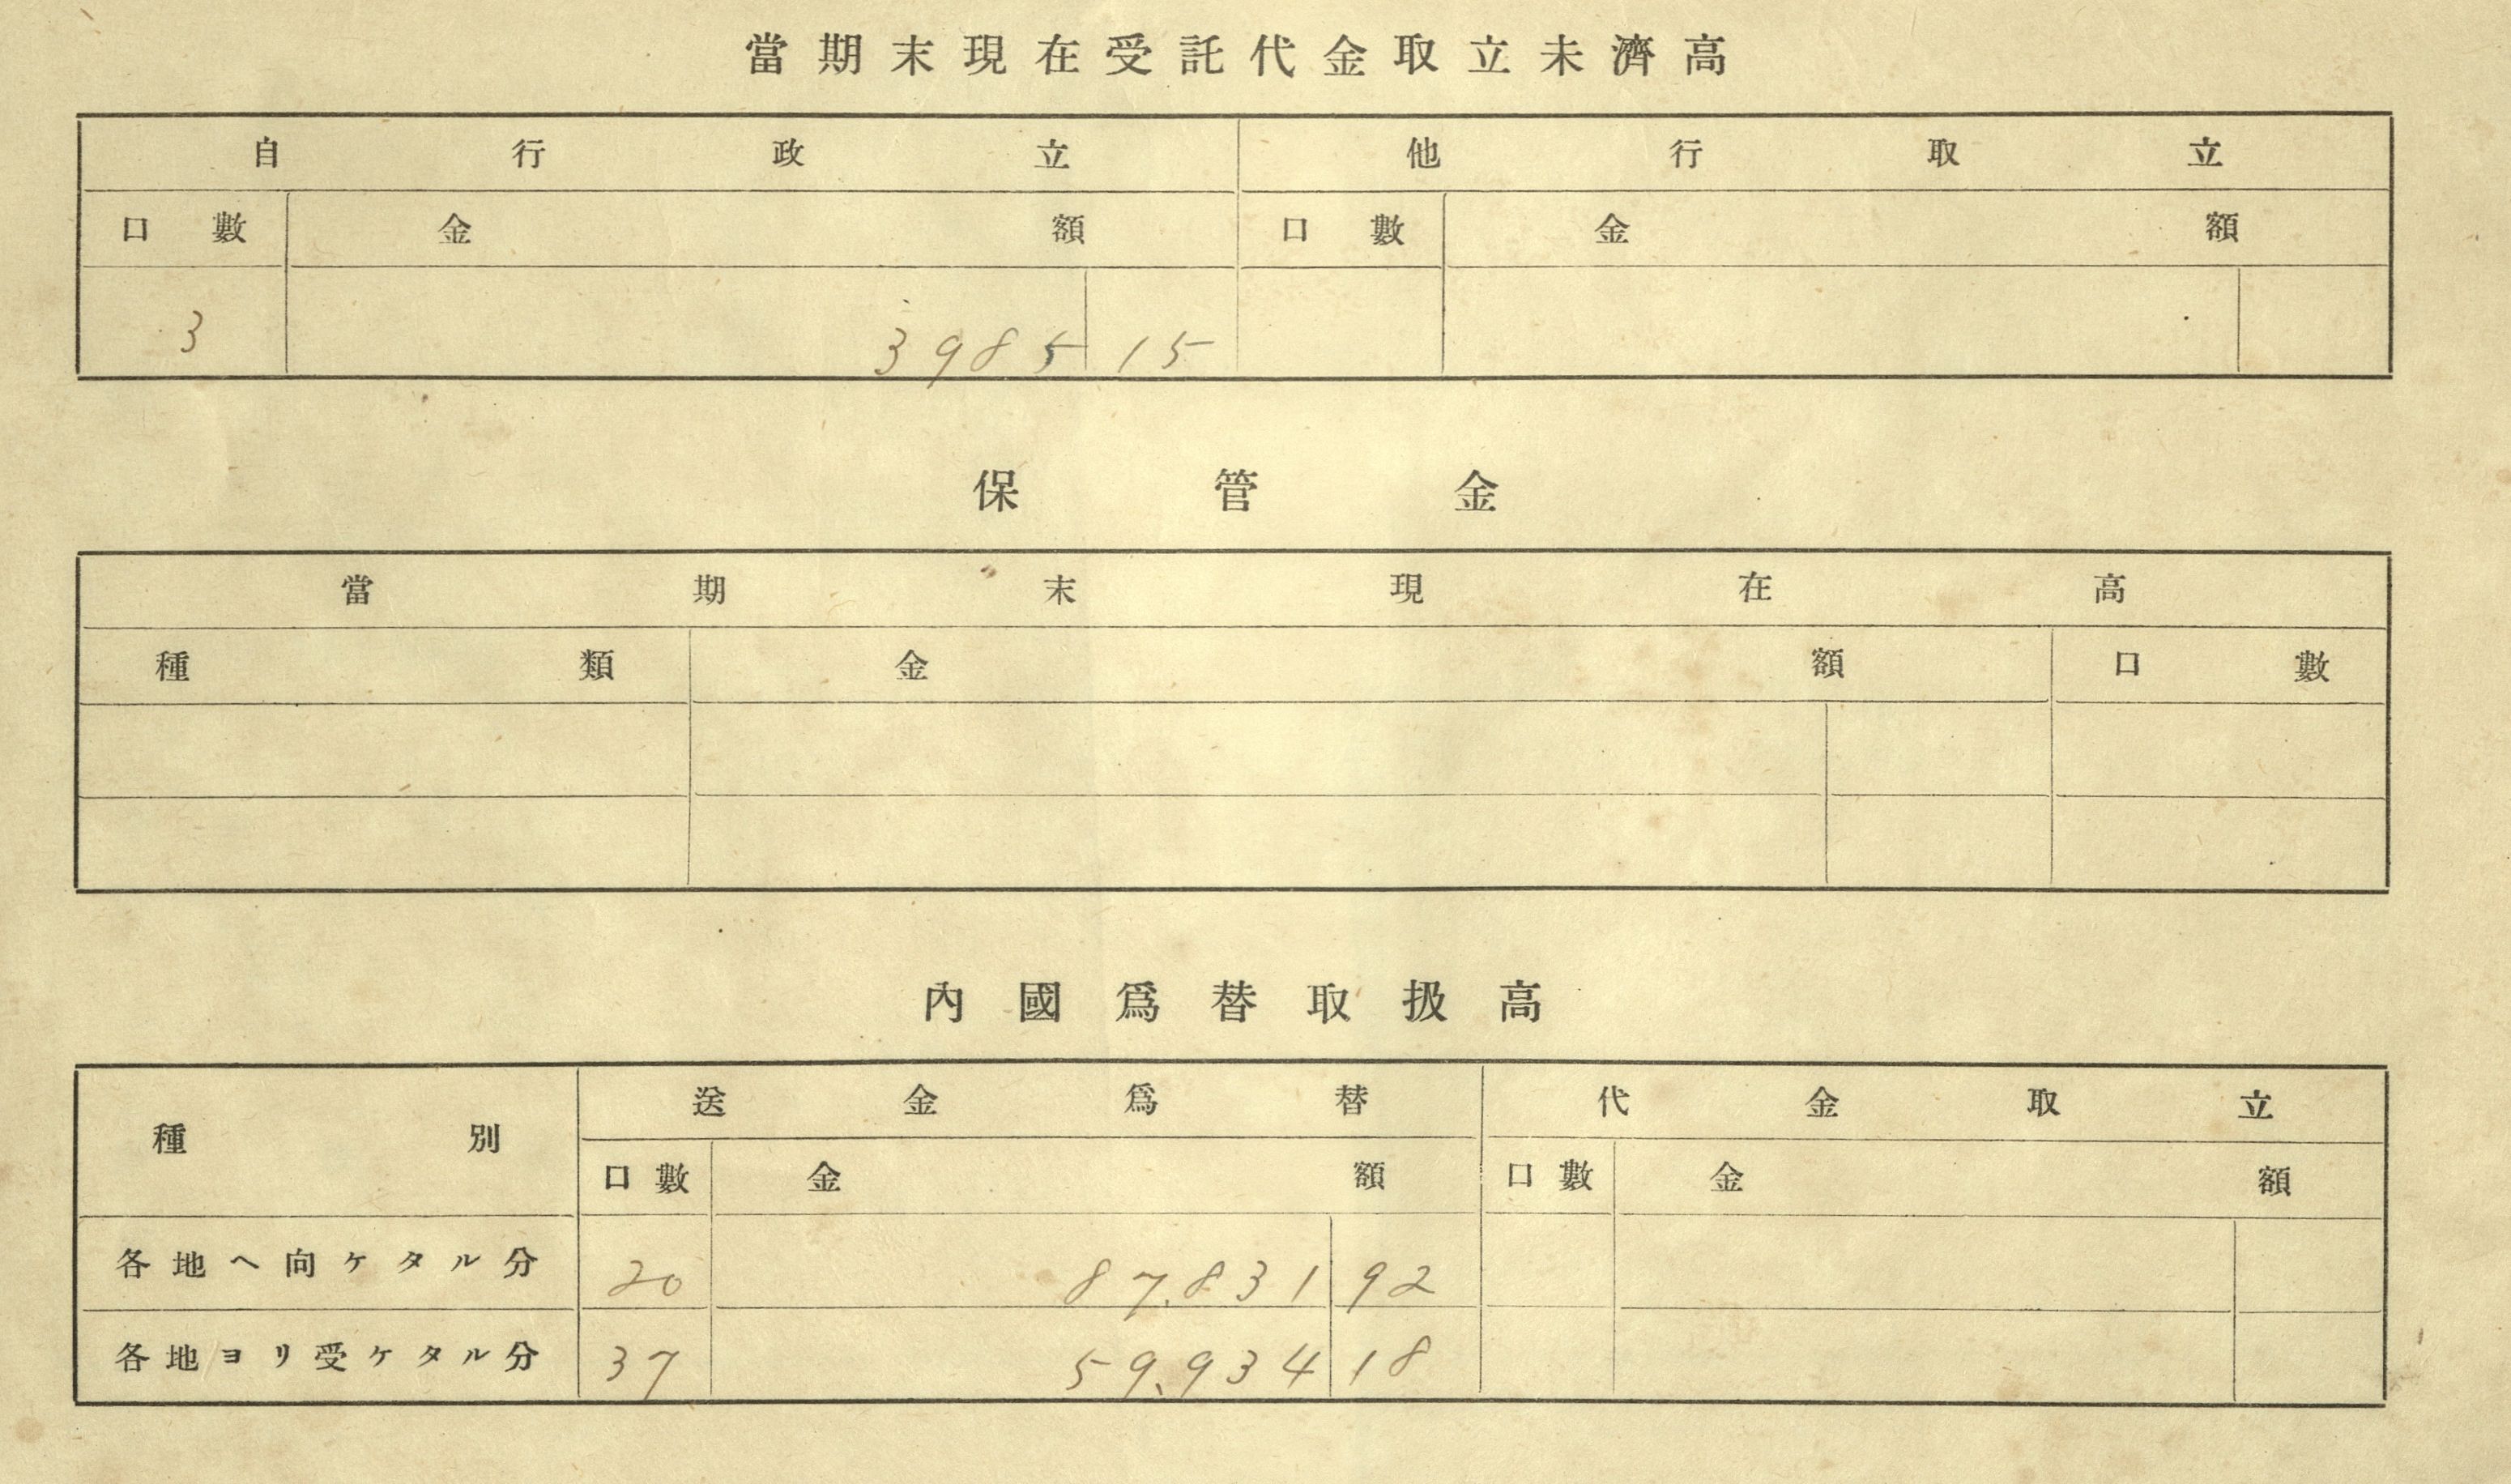 當期末現在受託代金取立未濟高
自行政立 他行取立
口數 金額 口數 金額
3 3985 15
保管金
當期末現在高
種類 金額 口數
內國爲替取扱高
種別 送金爲替 代金取立
口數 金額 口數 金額
各地ヘ向ケタル分 20 87,831 92
各地ヨリ受ケタル分 37 59,934 18